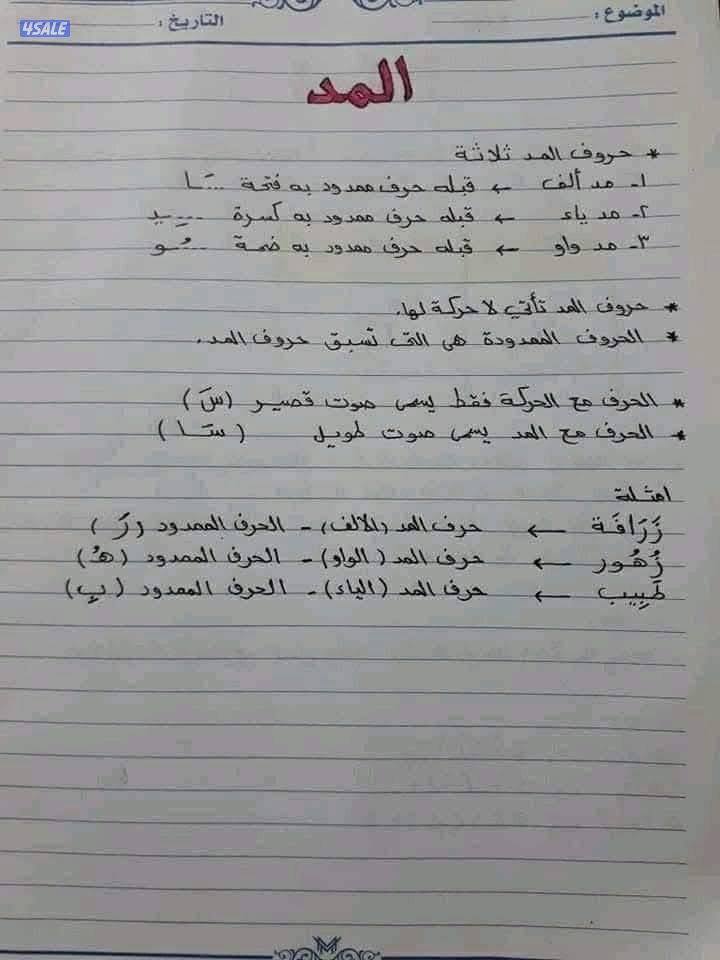 4SALE
الموضوع: التاريخ:
المد
* حروف المد ثلاثة
١- مد ألف ← قبله حرف ممدود به فتحة ...ـَـا
٢- مد ياء ← قبله حرف ممدود به كسرة ...ـِـيـ
٣- مد واو ← قبله حرف ممدود به ضمة ...ـُـو
* حروف المد تأتي لا حركة لها.
* الحروف الممدودة هى التى تسبق حروف المد.
* الحرف مع الحركة فقط يسمى صوت قصير (سَ)
* الحرف مع المد يسمى صوت طويل (سَـا)
امثلة
زَرَافَة ← حرف المد (الالف) - الحرف الممدود (رَ)
زُهُور ← حرف المد (الواو) - الحرف الممدود (هُـ)
طَبِيب ← حرف المد (الياء) - الحرف الممدود (بِ)